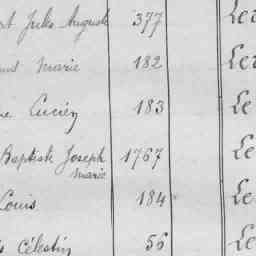 Jules Auguste 377 Le
Marie 182 Le
Lucien 183 Le
Baptiste Joseph 1767 Le
Marie
Louis 184 Le
Célestin 56 Le